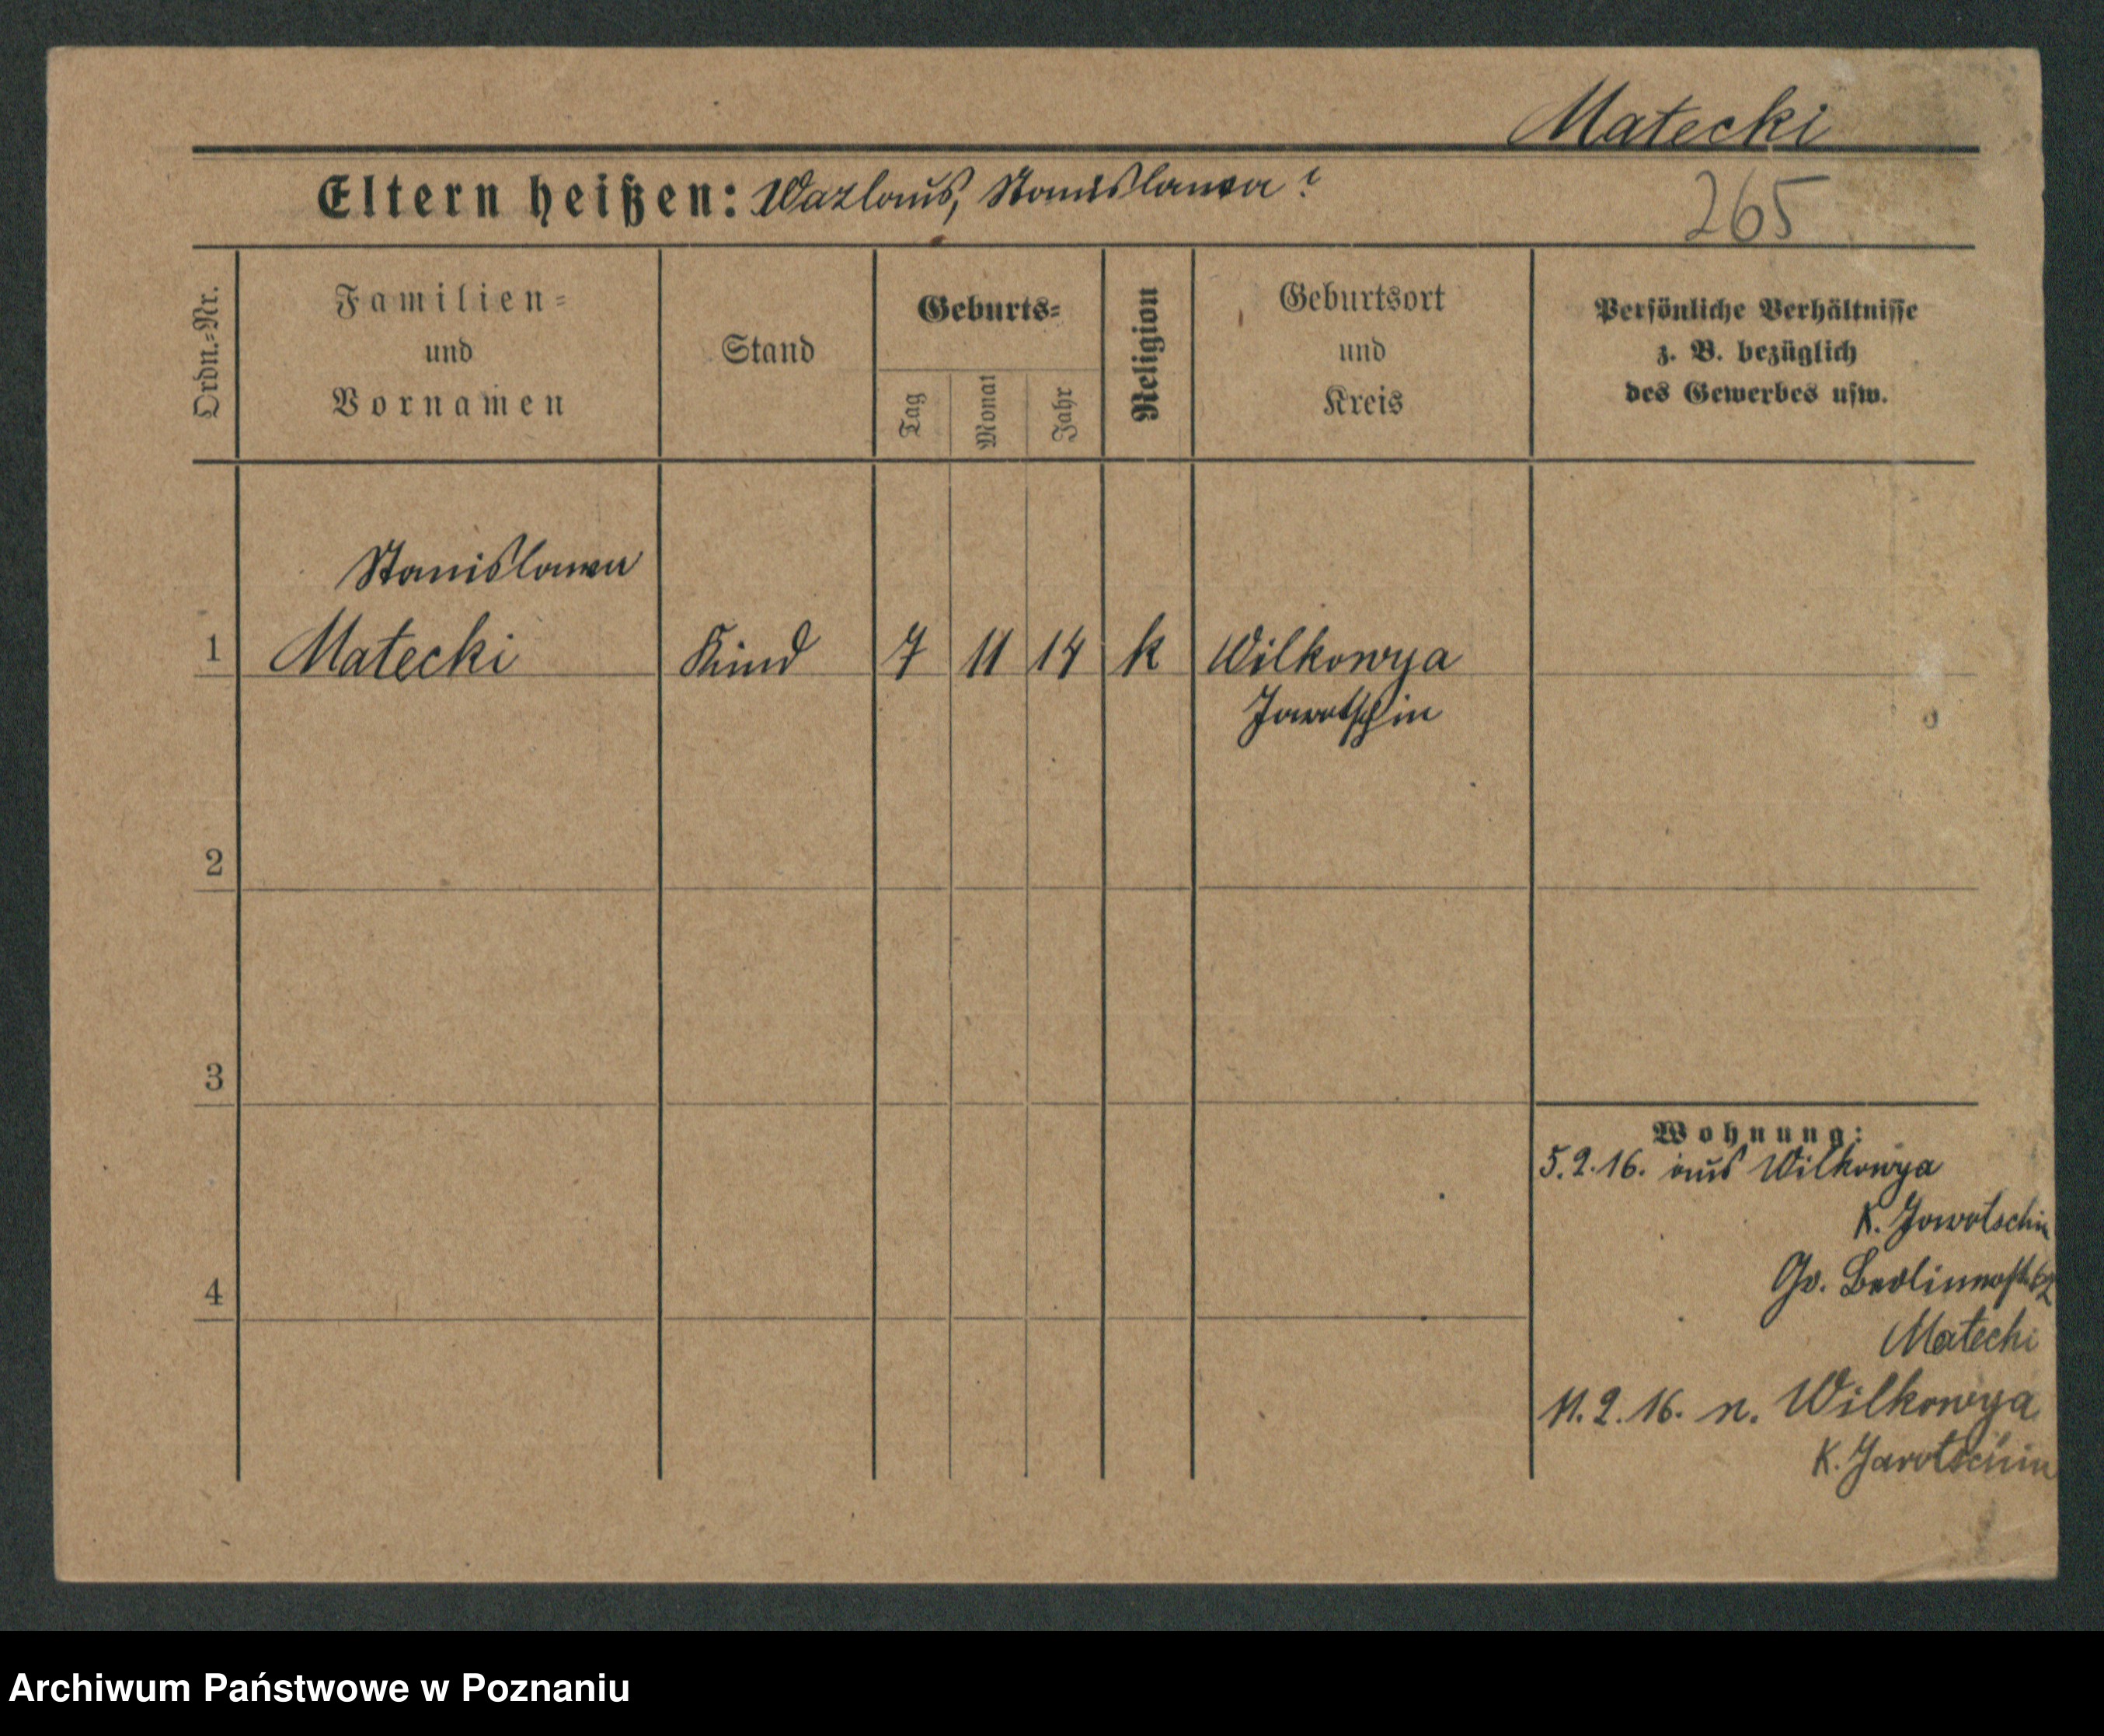 Matecki
Eltern heißen: Wazlaus, Stanislawa ?
265
Ordn.-Nr.
Familien-
und
Vornamen
Stand
Geburts-
Tag
Monat
Jahr
Religion
Geburtsort
und
Kreis
Persönliche Verhältnisse
z. B. bezüglich
des Gewerbes usw.
Stanislawa
1 Matecki Kind 7 11 14 k Wilkowya
Jarotschin
2
3
4
Wohnung:
5.2.16. aus Wilkowya
K. Jarotschin
Gr. Berlinerstr.
Matecki
11.2.16. n. Wilkowya
K. Jarotschin
Archiwum Państwowe w Poznaniu